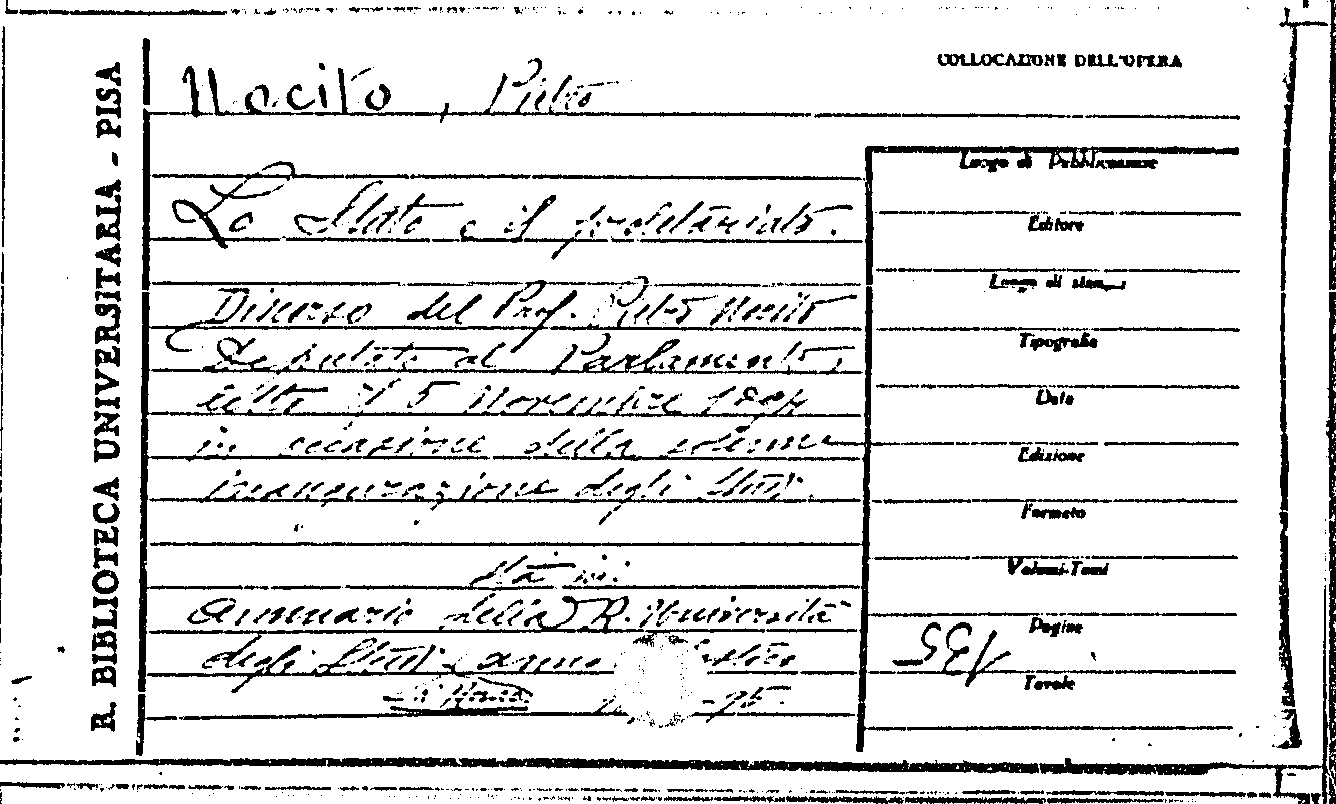 R. BIBLIOTECA UNIVERSITARIA - PISA
Nocito, Pietro
Lo Stato e il proletariato.
Discorso del Prof. Pietro Nocito
Deputato al Parlamento,
letto il 5 Novembre 1894
in occasione della solenne
inaugurazione degli Studi.
Sta in:
Annuario della R. Università
degli Studi anno
di Roma -95.
COLLOCAZIONE DELL'OPERA
Luogo di Pubblicazione
Editore
Luogo di stampa
Tipografia
Data
Edizione
Formato
Volumi-Tomi
Pagine
Tavole